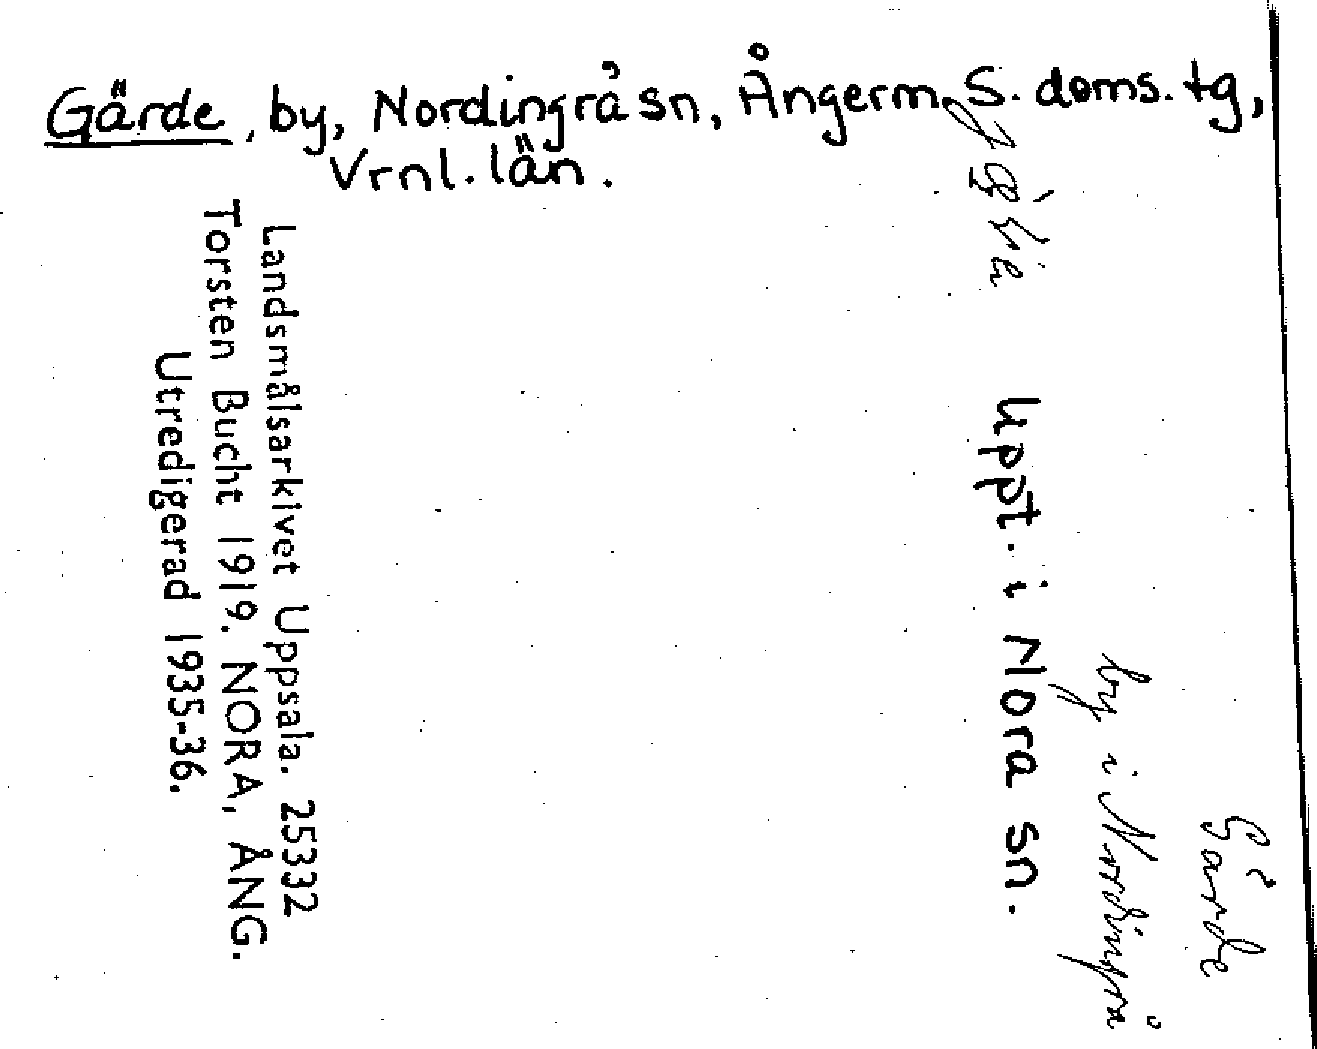 Gärde, by, Nordingrå sn, Ångerm. S. doms. tg,
Vrnl. län.
Gärde
by i Nordingrå
uppt. i Nora sn.
Landsmålsarkivet Uppsala. 25332
Torsten Bucht 1919. NORA, ÅNG.
Utredigerad 1935-36.